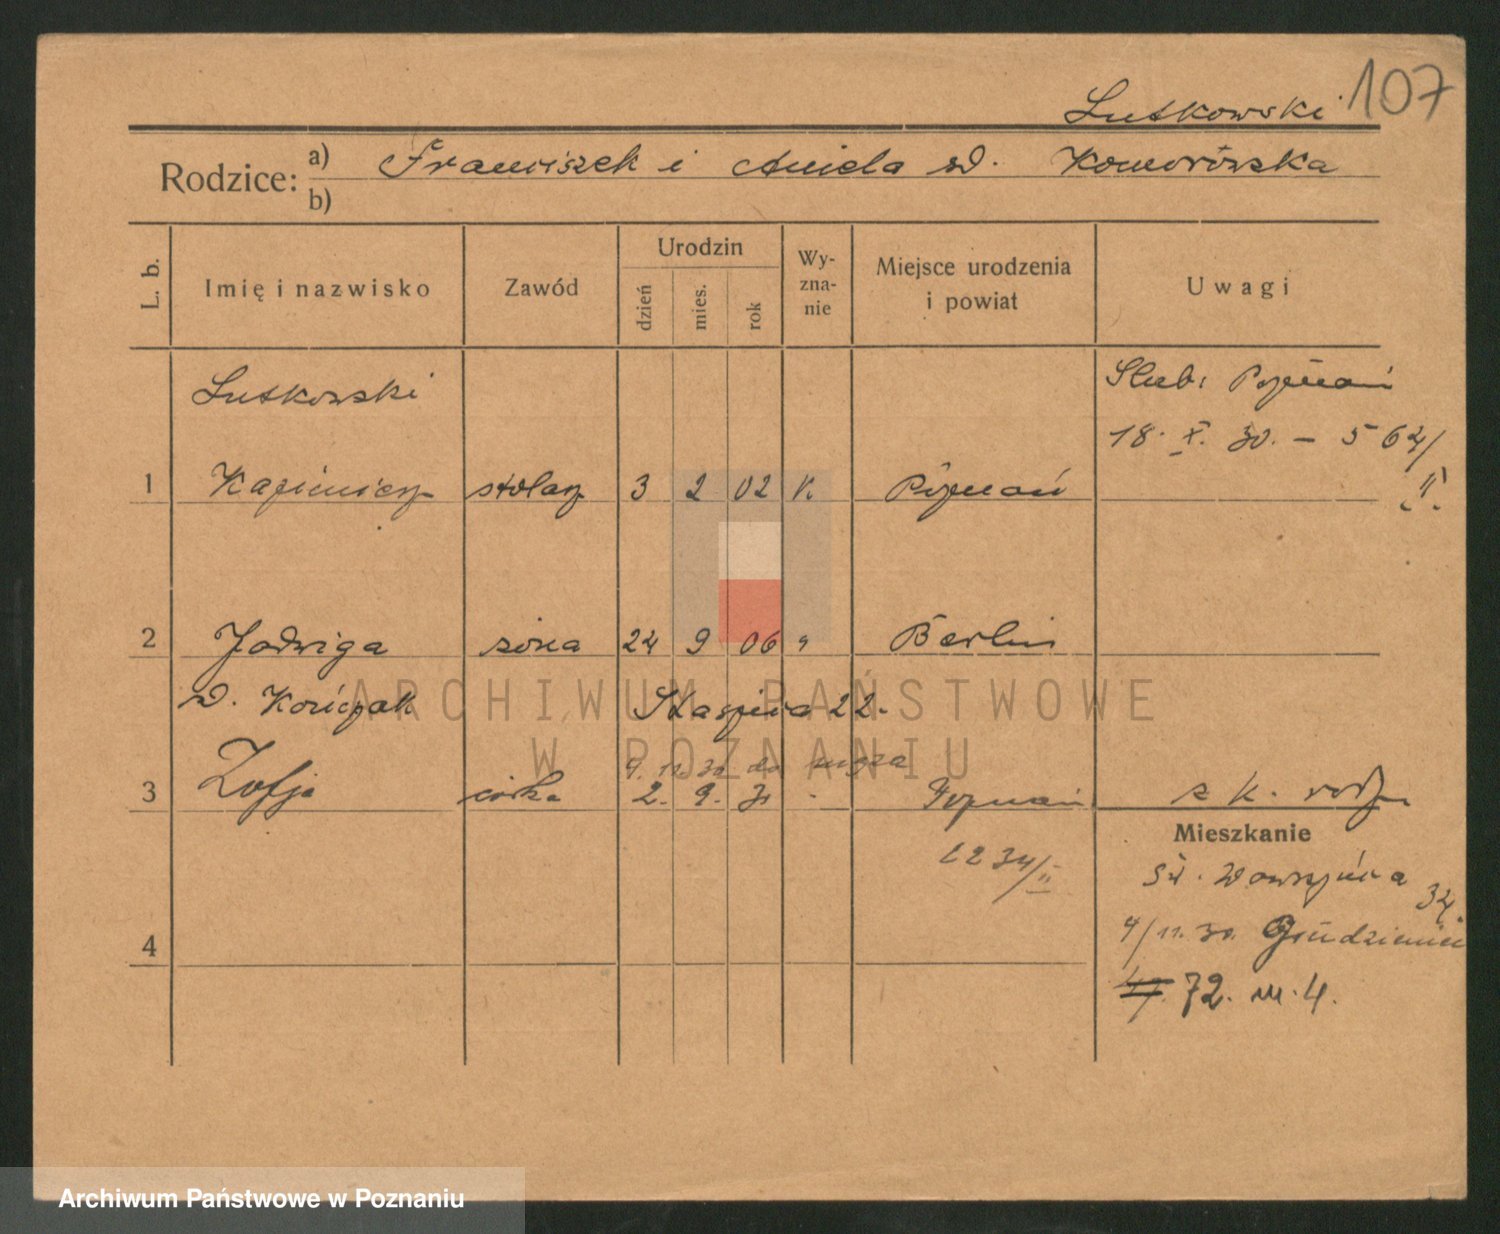 107
Lutkowski
Rodzice: a) Franciszek i Aniela d. Komorówska
b)
L. b. Imię i nazwisko Zawód Urodzin dzień mies. rok Wyznanie Miejsce urodzenia i powiat Uwagi
Lutkowski Ślub: Poznań
18. X. 30. — 564/
1 Kazimierz stolarz 3 2 02 K Poznań II
2 Jadwiga żona 24 9 06 " Berlin
d. Kończak Staszica 22.
9. 11. 30 do męża
3 Zofja córka 2. 9. 31 - Poznań z k. rodz.
Mieszkanie
1234/II św. Wawrzyńca 34.
4 4/11. 30. Grudzieniec
72. m. 4.
ARCHIWUM PAŃSTWOWE
W POZNANIU
Archiwum Państwowe w Poznaniu